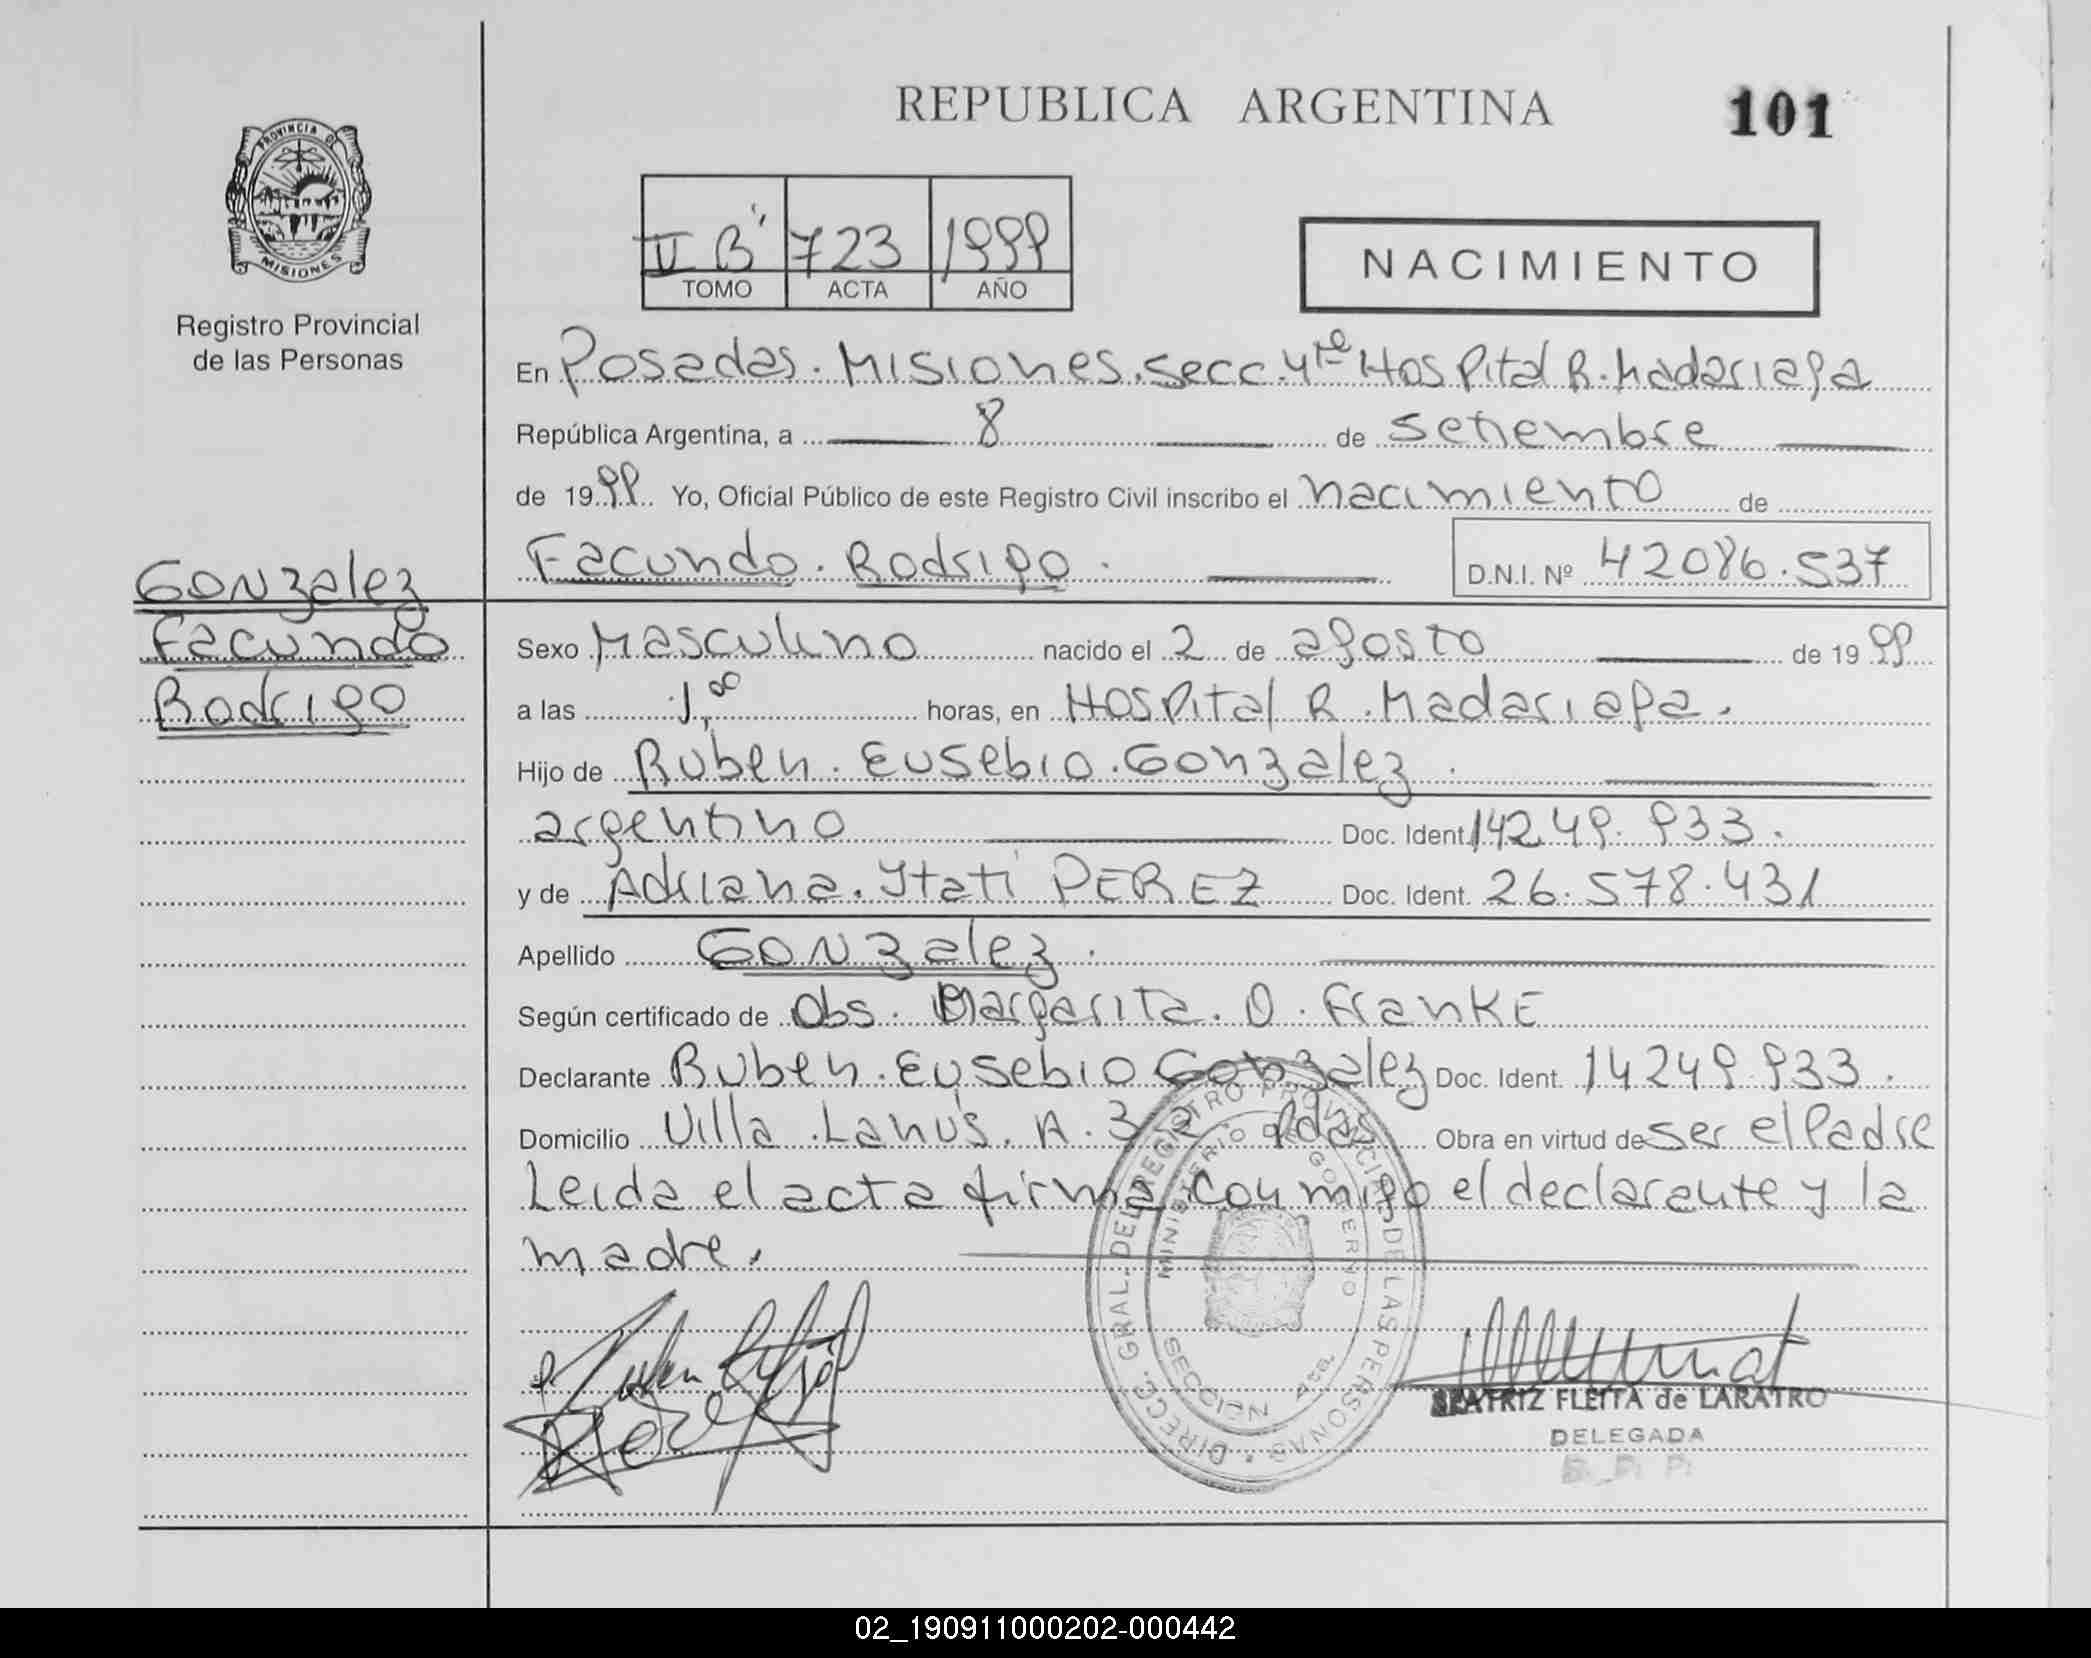 REPUBLICA ARGENTINA
101
PROVINCIA DE
MISIONES
Registro Provincial
de las Personas
II B" 723 1999
TOMO ACTA AÑO
NACIMIENTO
En Posadas. Misiones. Secc. 4ta Hospital R. Madariaga
República Argentina, a 8 de Setiembre
de 1999 Yo, Oficial Público de este Registro Civil inscribo el nacimiento de
Facundo. Rodrigo. D.N.I. Nº 42086.537
Gonzalez
Facundo
Rodrigo
Sexo Masculino nacido el 2 de agosto de 1999
a las 1,00 horas, en Hospital R. Madariaga.
Hijo de Ruben. Eusebio. Gonzalez.
argentino Doc. Ident. 14249.933.
y de Adriana. Itatí PEREZ Doc. Ident. 26.578.431
Apellido Gonzalez.
Según certificado de Obs. Margarita. O. Franke
Declarante Ruben. Eusebio Gonzalez Doc. Ident. 14249.933.
Domicilio Villa. Lanús. A. 3 Pdas Obra en virtud de Ser el Padre
Leida el acta firma conmigo el declarante y la
madre.
DIRECC. GRAL. DEL REGISTRO PROVINCIAL DE LAS PERSONAS
MINISTERIO DE GOBIERNO
SECCION 4ta.
BEATRIZ FLEITA de LARATRO
DELEGADA
02_190911000202-000442